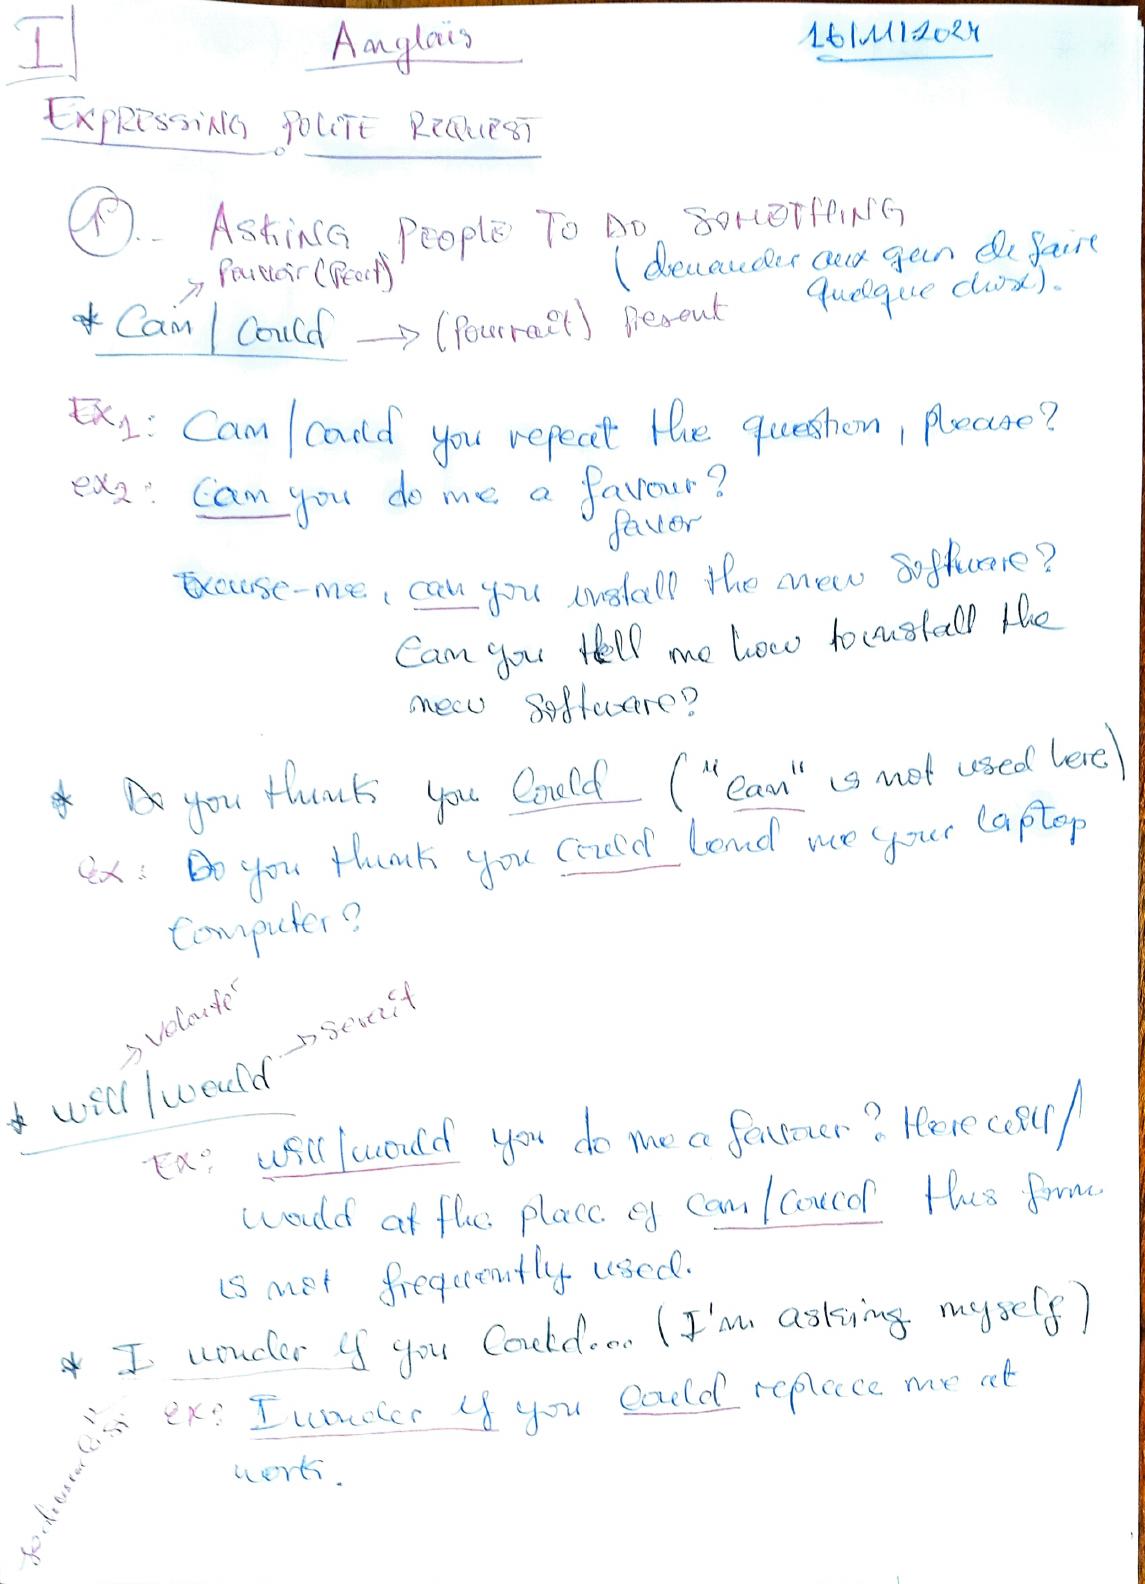 I
Anglais
16/11/2024
EXPRESSING POLITE REQUEST
1°.. ASKING PEOPLE TO DO SOMETHING
(demander aux gens de faire
quelque chose).
Pouvoir (Peut)
* Can / Could → (Pourrait) Present
Ex1: Can / Could you repeat the question, please?
ex2: Can you do me a favour?
favor
Excuse-me, can you install the new software?
Can you tell me how to install the
new software?
* Do you think you Could ("Can" is not used here)
ex: Do you think you Could lend me your laptop
Computer?
→ volonté
→ serait
* will / would
Ex: will / would you do me a favour? Here will /
would at the place of can / could this form
is not frequently used.
* I wonder if you Could... (I'm asking myself)
ex: I wonder if you Could replace me at
work.